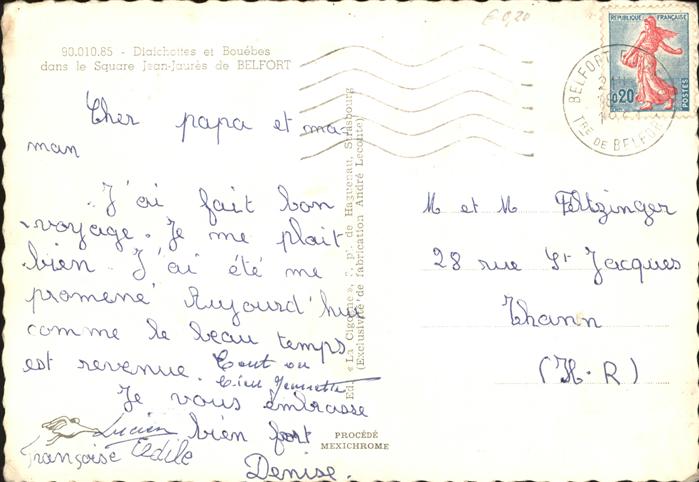 90.010.85 - Dialchottes et Bouébes
dans le Square Jean-Jaurès de BELFORT
Cher papa et ma-
man
J'ai fait bon
voyage. Je me plait
bien. J'ai été me
promené Aujourd'hui
comme le beau temps
est revenue.
Je vous embrasse
bien fort
Denise.
Lucien
Françoise Odile
Jeannette
PROCÉDÉ
MEXICHROME
Ed. « La Cigogne », r. de Haguenau, Strasbourg
(Exclusivité de fabrication André Leconte)
€ 0,20
RÉPUBLIQUE FRANÇAISE
0,20
POSTES
BELFORT
TRE DE BELFORT
M et M Feltzinger
28 rue St Jacques
Thann
(H.R)